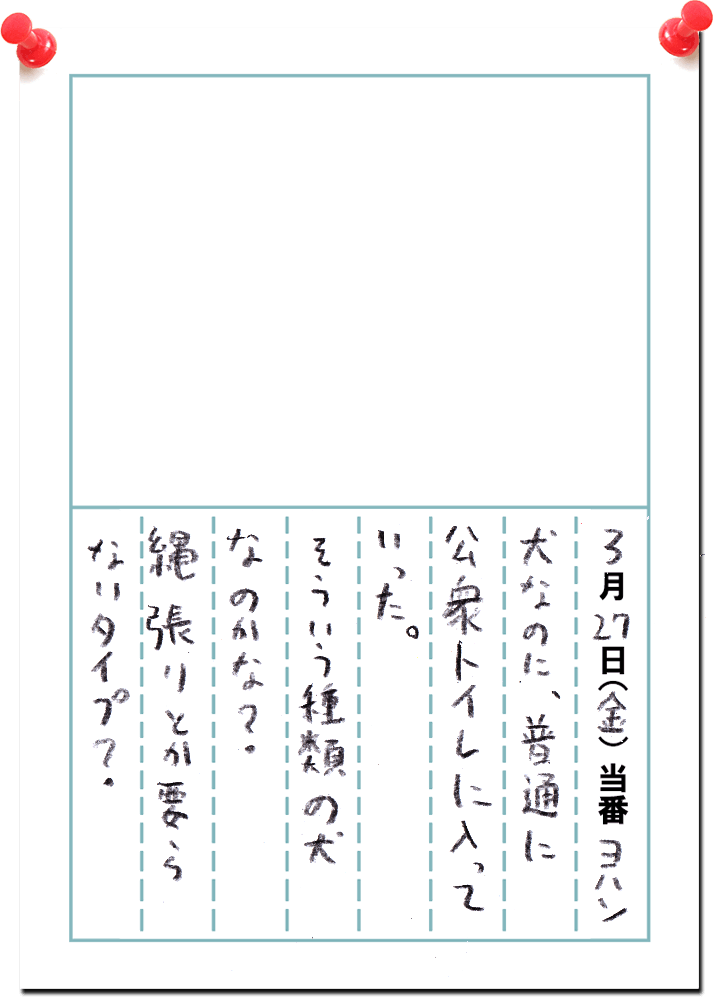 3月27日(金)当番ヨハン
犬なのに、普通に
公衆トイレに入って
いった。
そういう種類の犬
なのかな?
縄張りとか要ら
ないタイプ?